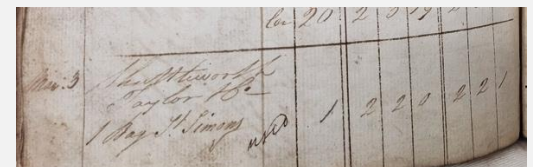 20 2
Mar. 3 Shuttleworth
Taylor & Co
1 Bag St Simons 1 2 2 0 2 2 1